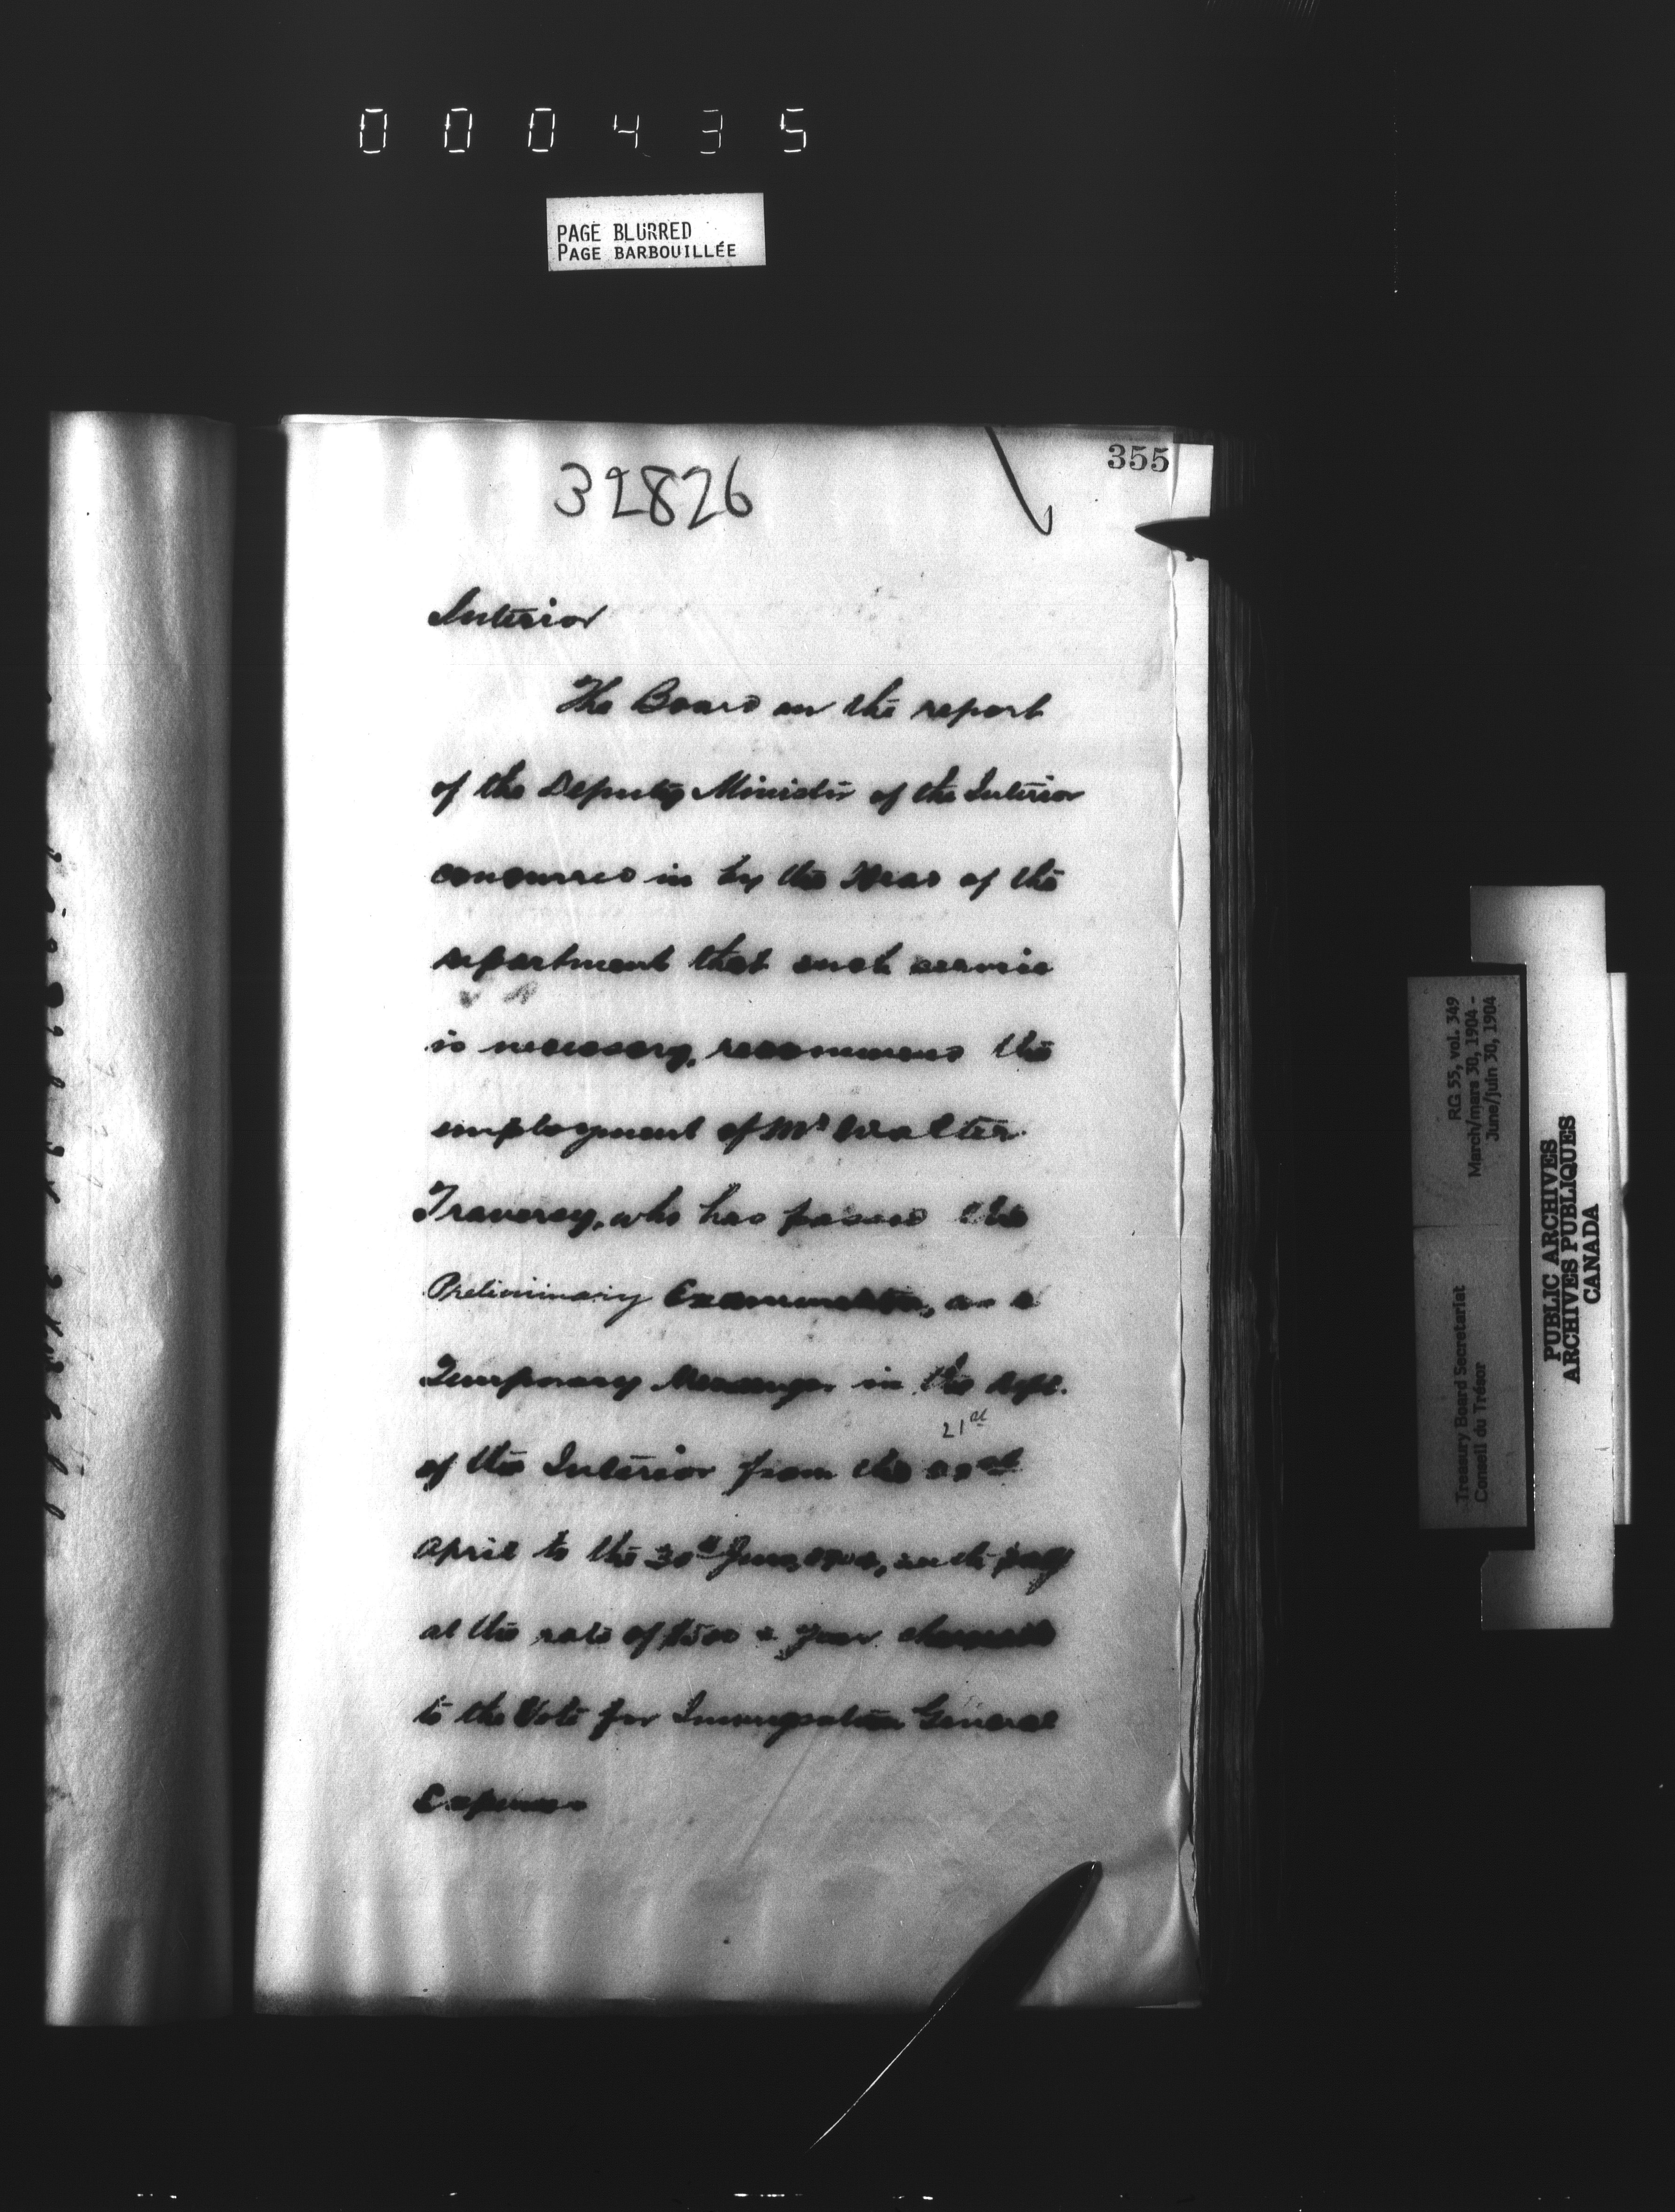 000435
PAGE BLURRED
PAGE BARBOUILLÉE
355
32826
Interior
The Board on the report
of the Deputy Minister of the Interior
concurred in by the Head of the
department that such service
is necessary, recommend the
employment of Mr Walter
Traversy, who has passed the
Preliminary Examination, as a
Temporary Messenger in the Dept.
21st
of the Interior from the
April to the 30th June, 1904, with pay
at the rate of $500 a year chargeable
to the Vote for Immigration General
Expenses
RG 55, vol. 349
March/mars 30, 1904 -
June/juin 30, 1904
Treasury Board Secretariat
Conseil du Trésor
PUBLIC ARCHIVES
ARCHIVES PUBLIQUES
CANADA